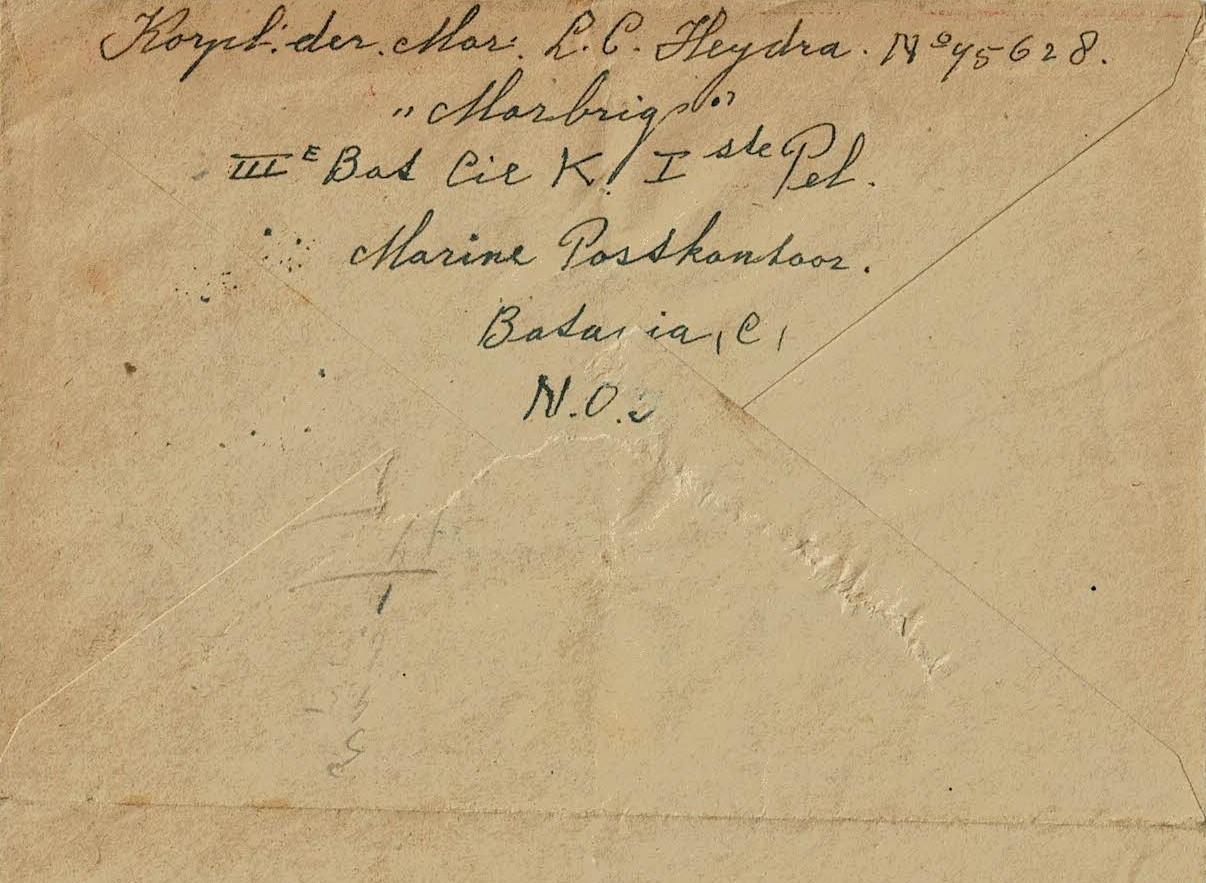 Korpl. der. Mar. L. C. Heydra. Nº 95628.
"Marbrig"
IIIᴱ Bat Cie K. I ste Pel.
Marine Postkantoor.
Batavia, C,
N.O.I